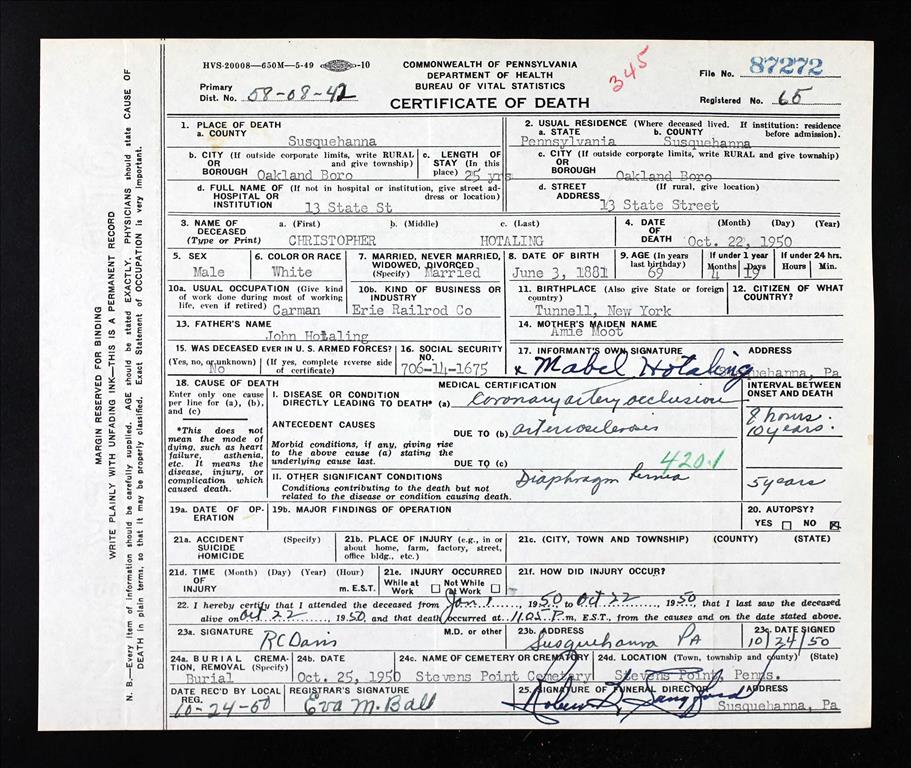 HVS-20008—650M—5-49 -10
COMMONWEALTH OF PENNSYLVANIA
DEPARTMENT OF HEALTH
BUREAU OF VITAL STATISTICS
CERTIFICATE OF DEATH
345
File No. 87272
Primary
Dist. No. 58-08-42
Registered No. 65
1. PLACE OF DEATH
a. COUNTY
Susquehanna
2. USUAL RESIDENCE (Where deceased lived. If institution: residence
a. STATE b. COUNTY before admission).
Pennsylvania Susquehanna
b. CITY (If outside corporate limits, write RURAL
OR and give township)
BOROUGH Oakland Boro
c. LENGTH OF
STAY (In this
place) 25 yrs
c. CITY (If outside corporate limits, write RURAL and give township)
OR
BOROUGH Oakland Boro
d. FULL NAME OF (If not in hospital or institution, give street ad-
HOSPITAL OR dress or location)
INSTITUTION 13 State St
d. STREET (If rural, give location)
ADDRESS 13 State Street
3. NAME OF a. (First) b. (Middle) c. (Last)
DECEASED
(Type or Print) CHRISTOPHER HOTALING
4. DATE (Month) (Day) (Year)
OF
DEATH Oct. 22, 1950
5. SEX
Male
6. COLOR OR RACE
White
7. MARRIED, NEVER MARRIED,
WIDOWED, DIVORCED
(Specify) Married
8. DATE OF BIRTH
June 3, 1881
9. AGE (In years
last birthday)
69
If under 1 year
Months Days
4 19
If under 24 hrs.
Hours Min.
10a. USUAL OCCUPATION (Give kind
of work done during most of working
life, even if retired) Carman
10b. KIND OF BUSINESS OR
INDUSTRY
Erie Railrod Co
11. BIRTHPLACE (Also give State or foreign
country)
Tunnell, New York
12. CITIZEN OF WHAT
COUNTRY?
13. FATHER'S NAME
John Hotaling
14. MOTHER'S MAIDEN NAME
Amie Moot
15. WAS DECEASED EVER IN U. S. ARMED FORCES?
(Yes, no, or unknown) (If yes, complete reverse side
No of certificate)
16. SOCIAL SECURITY
NO.
706-14-1675
17. INFORMANT'S OWN SIGNATURE ADDRESS
x Mabel Hotaling Susquehanna, Pa
18. CAUSE OF DEATH
Enter only one cause
per line for (a), (b),
and (c)
*This does not
mean the mode of
dying, such as heart
failure, asthenia,
etc. It means the
disease, injury, or
complication which
caused death.
MEDICAL CERTIFICATION
INTERVAL BETWEEN
ONSET AND DEATH
I. DISEASE OR CONDITION
DIRECTLY LEADING TO DEATH* (a) Coronary artery occlusion
8 hours.
ANTECEDENT CAUSES
DUE TO (b) arteriosclerosis
10 years.
Morbid conditions, if any, giving rise
to the above cause (a) stating the
underlying cause last.
DUE TO (c)
420.1
II. OTHER SIGNIFICANT CONDITIONS
Conditions contributing to the death but not
related to the disease or condition causing death.
Diaphragm Hernia
5 years
19a. DATE OF OP-
ERATION
19b. MAJOR FINDINGS OF OPERATION
20. AUTOPSY?
YES NO
21a. ACCIDENT (Specify)
SUICIDE
HOMICIDE
21b. PLACE OF INJURY (e.g., in or
about home, farm, factory, street,
office bldg., etc.)
21c. (CITY, TOWN AND TOWNSHIP) (COUNTY) (STATE)
21d. TIME (Month) (Day) (Year) (Hour)
OF
INJURY m. E.S.T.
21e. INJURY OCCURRED
While at Not While
Work at Work
21f. HOW DID INJURY OCCUR?
22. I hereby certify that I attended the deceased from Jan 1, 1950 to Oct 22, 1950, that I last saw the deceased
alive on Oct 22, 1950, and that death occurred at 11.05 P.m, E.S.T., from the causes and on the date stated above.
23a. SIGNATURE M.D. or other
R C Davis
23b. ADDRESS
Susquehanna Pa
23c. DATE SIGNED
10/24/50
24a. BURIAL CREMA-
TION, REMOVAL (Specify)
Burial
24b. DATE
Oct. 25, 1950
24c. NAME OF CEMETERY OR CREMATORY
Stevens Point Cemetary
24d. LOCATION (Town, township and county) (State)
Stevens Point Penns.
DATE REC'D BY LOCAL
REG.
10-24-50
REGISTRAR'S SIGNATURE
Eva M. Ball
25. SIGNATURE OF FUNERAL DIRECTOR ADDRESS
Susquehanna, Pa
MARGIN RESERVED FOR BINDING
WRITE PLAINLY WITH UNFADING INK—THIS IS A PERMANENT RECORD
N. B.—Every item of information should be carefully supplied. AGE should be stated EXACTLY. PHYSICIANS should state CAUSE OF
DEATH in plain terms, so that it may be properly classified. Exact Statement of OCCUPATION is very important.